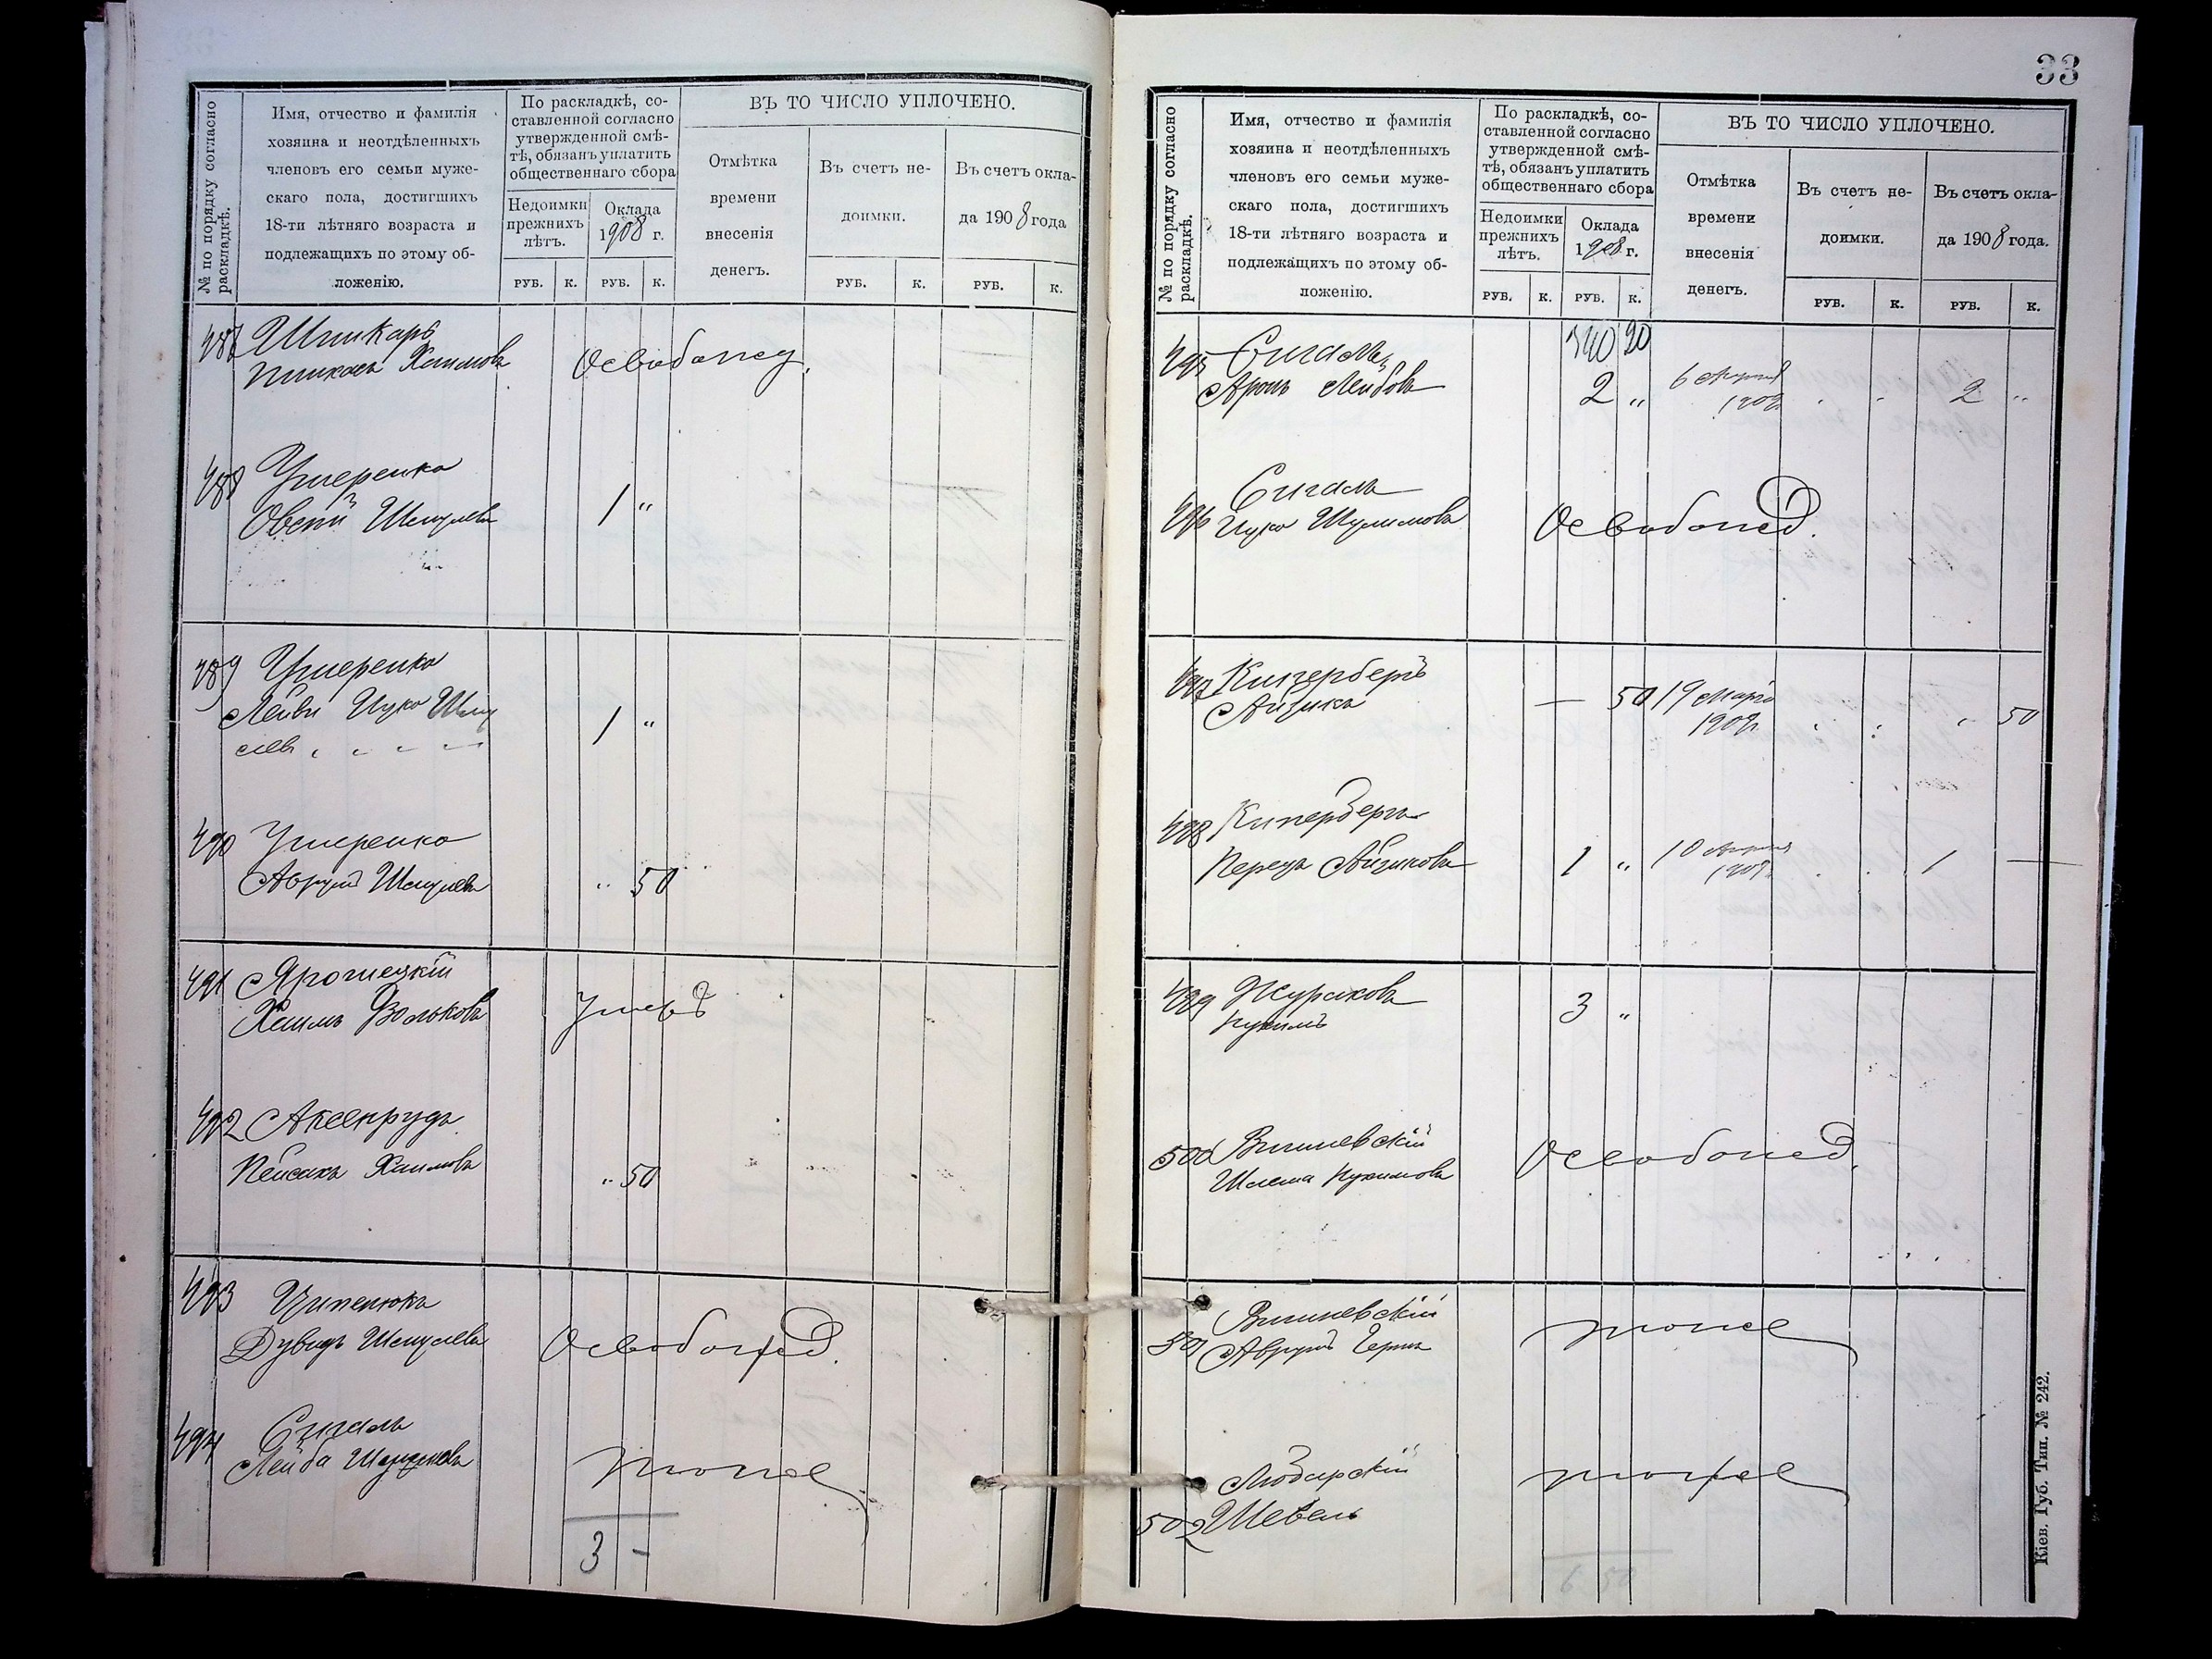 № по порядку согласно раскладкѣ.
Имя, отчество и фамилія
хозяина и неотдѣленныхъ
членовъ его семьи муже-
скаго пола, достигшихъ
18-ти лѣтняго возраста и
подлежащихъ по этому об-
ложенію.
По раскладкѣ, со-
ставленной согласно
утвержденной смѣ-
тѣ, обязанъ уплатить
общественнаго сбора
Недоимки
прежнихъ
лѣтъ.
Оклада
1908 г.
РУБ. К. РУБ. К.
ВЪ ТО ЧИСЛО УПЛОЧЕНО.
Отмѣтка
времени
внесенія
денегъ.
Въ счетъ не-
доимки.
Въ счетъ окла-
да 1908 года
РУБ. К. РУБ. К.
487 Шпикарь
Пинкасъ Хаимовъ Освобожд.
488 Умеренко
Овсій Шмулевъ 1 "
489 Умеренко
Лейви Ицко Шму
левъ 1 "
490 Умеренко
Аврумъ Шмулевъ " 50
491 Ярошецкій
Хаимъ Вольковъ Умеръ
492 Аксенрудъ
Пейсахъ Хаимовъ " 50
493 Ципенюкъ
Дувидъ Шмулевъ Освобожд.
494 Сигаль
Лейба Шмулевъ тоже
3 -
33
№ по порядку согласно раскладкѣ.
Имя, отчество и фамилія
хозяина и неотдѣленныхъ
членовъ его семьи муже-
скаго пола, достигшихъ
18-ти лѣтняго возраста и
подлежащихъ по этому об-
ложенію.
По раскладкѣ, со-
ставленной согласно
утвержденной смѣ-
тѣ, обязанъ уплатить
общественнаго сбора
Недоимки
прежнихъ
лѣтъ.
Оклада
1908 г.
РУБ. К. РУБ. К.
ВЪ ТО ЧИСЛО УПЛОЧЕНО.
Отмѣтка
времени
внесенія
денегъ.
Въ счетъ не-
доимки.
Въ счетъ окла-
да 1908 года.
РУБ. К. РУБ. К.
495 Сигаль
Аронъ Лейбовъ 2 " 6 Апрѣля 1908 2 "
496 Сигаль
Ицко Шулимовъ Освобожд.
497 Кинзербергъ
Айзикъ — 50 19 Марта 1908г. 50
498
Перецъ Айзиковъ 1 " 10 Апрѣля 1908 1 —
499 Жураковъ
Нухимъ 3 "
500 Вишневскій
Шлема Нухимовъ Освобожд.
501 Вишневскій
Аврумъ Герш тоже
Любарскій
502 Шевель тоже
6 50
Кіев. Губ. Тип. № 242.